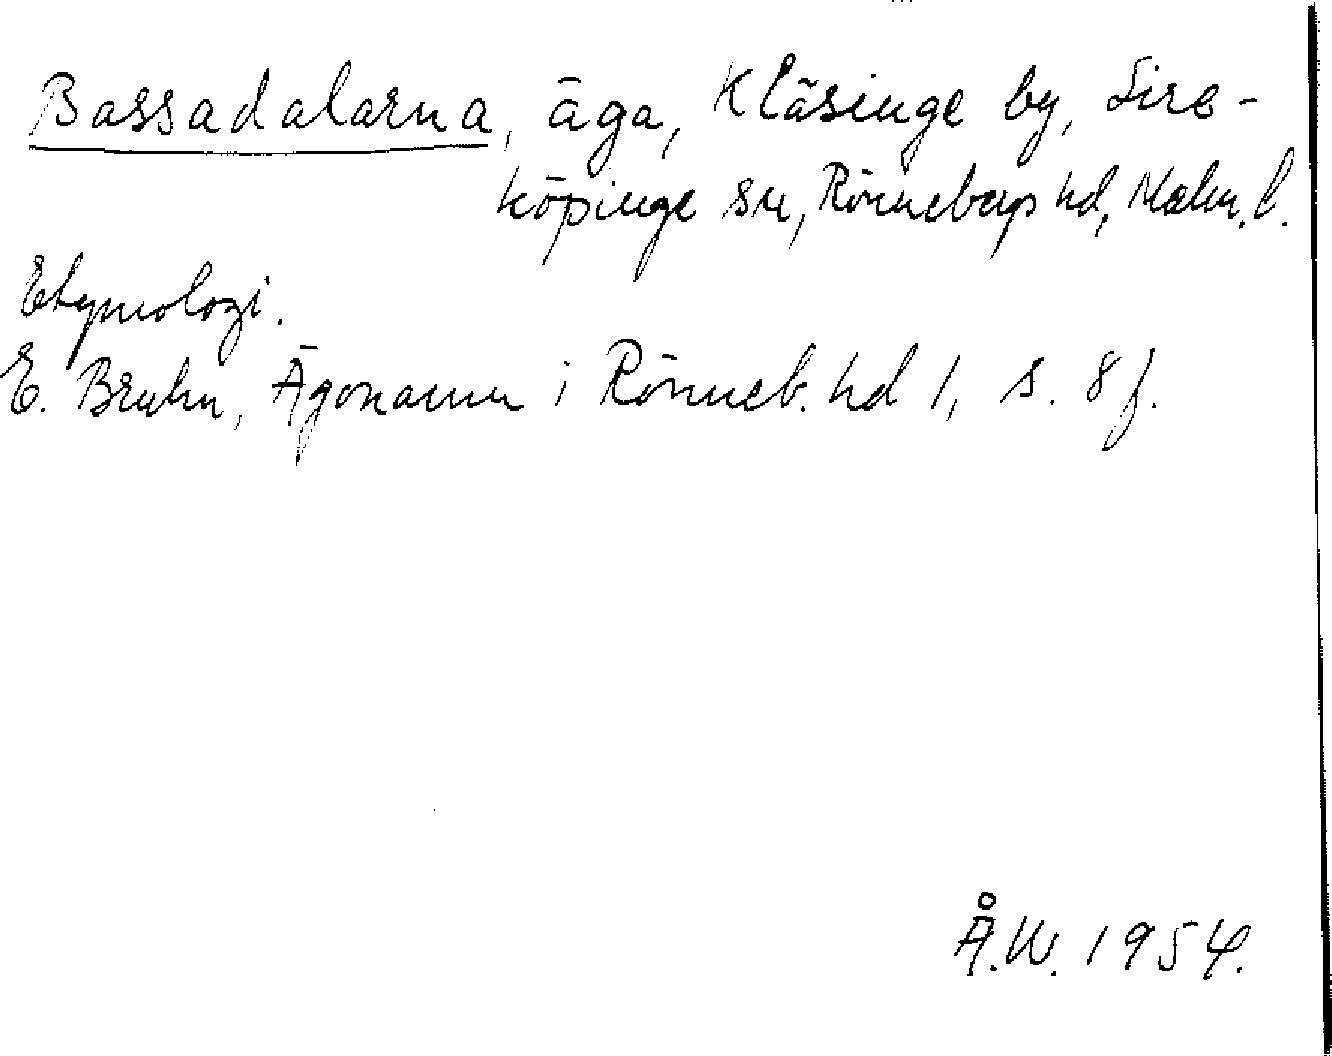 Bassadalarna, äga, Kläsinge by, Sire-
köpinge sn, Rönnebergs hd, Malm. l.
Etymologi.
E. Bruhn, Ägonamn i Rönneb. hd 1, s. 8 f.
Å.W. 1954.